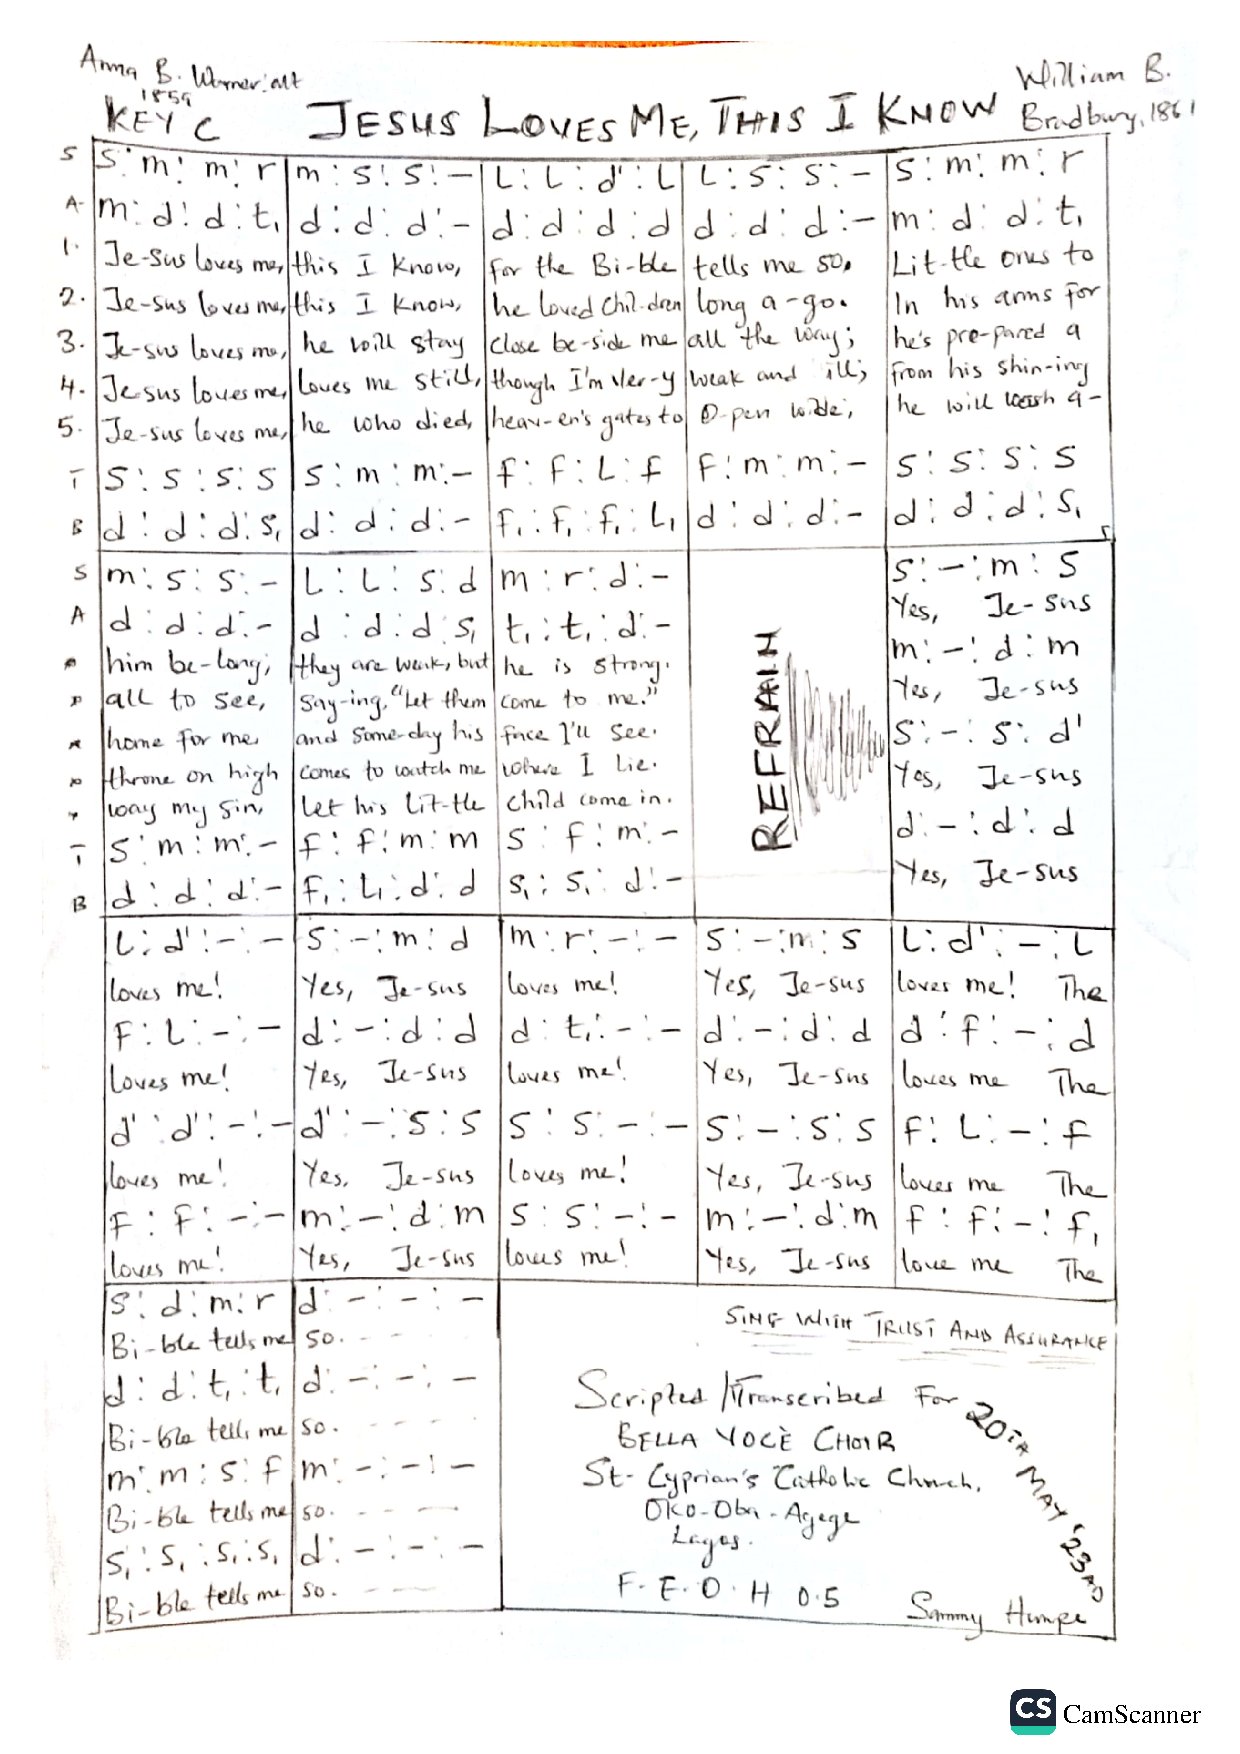 Anna B. Warner: alt
1859
William B.
Bradbury, 1861
KEY C JESUS LOVES ME, THIS I KNOW
S s : m : m : r | m : s : s : - | L : L : d' : L | L : s : s : - | s : m : m : r
A m : d : d : t, | d : d : d : - | d : d : d : d | d : d : d : - | m : d : d : t,
1. Je-sus loves me, | this I know, | for the Bi-ble | tells me so. | Lit-tle ones to
2. Je-sus loves me, | this I know, | he loved Chil-dren | long a-go. | In his arms for
3. Je-sus loves me, | he will stay | close be-side me | all the way; | he's pre-pared a
4. Je-sus loves me, | loves me still, | though I'm Ver-y | weak and ill; | from his shin-ing
5. Je-sus loves me, | he who died, | heav-en's gates to | O-pen wide; | he will wash a-
T s : s : s : s | s : m : m : - | f : f : L : f | f : m : m : - | s : s : s : s
B d : d : d : s, | d : d : d : - | f, : f, : f, : L, | d : d : d : - | d : d : d : s,
S m : s : s : - | L : L : s : d | m : r : d : - | s : - : m : s
Yes, Je-sus
A d : d : d : - | d : d : d : s, | t, : t, : d : - | m : - : d : m
him be-long; | they are weak, but | he is strong. | Yes, Je-sus
all to see, | Say-ing, "Let them | come to me." | s : - : s : d'
home for me, | and some-day his | face I'll see. | Yes, Je-sus
throne on high | comes to watch me | where I lie. | d : - : d : d
way my sin, | Let his Lit-tle | Child come in. | Yes, Je-sus
T s : m : m : - | f : f : m : m | s : f : m : -
B d : d : d : - | f, : L, : d : d | s, : s, : d : -
REFRAIN
L : d' : - : - | s : - : m : d | m : r : - : - | s : - : m : s | L : d' : - : L
loves me! | Yes, Je-sus | loves me! | Yes, Je-sus | loves me! The
f : L : - : - | d : - : d : d | d : t, : - : - | d : - : d : d | d : f : - : d
loves me! | Yes, Je-sus | loves me! | Yes, Je-sus | loves me The
d' : d' : - : - | d' : - : s : s | s : s : - : - | s : - : s : s | f : L : - : f
loves me! | Yes, Je-sus | loves me! | Yes, Je-sus | loves me The
f : f : - : - | m : - : d : m | s : s : - : - | m : - : d : m | f : f : - : f,
loves me! | Yes, Je-sus | loves me! | Yes, Je-sus | love me The
s : d : m : r | d : - : - : -
Bi-ble tells me | so. - - -
d : d : t, : t, | d : - : - : -
Bi-ble tells me | so. - - -
m : m : s : f | m : - : - : -
Bi-ble tells me | so. - - -
s, : s, : s, : s, | d : - : - : -
Bi-ble tells me | so. - - -
SING WITH TRUST AND ASSURANCE
Scripted/Transcribed For
BELLA VOCÈ CHOIR
St- Cyprian's Catholic Church,
Oko-Oba - Agege
Lagos.
F. E. O. H 0.5
20TH MAY '23RD
Sammy Humpe
CS CamScanner